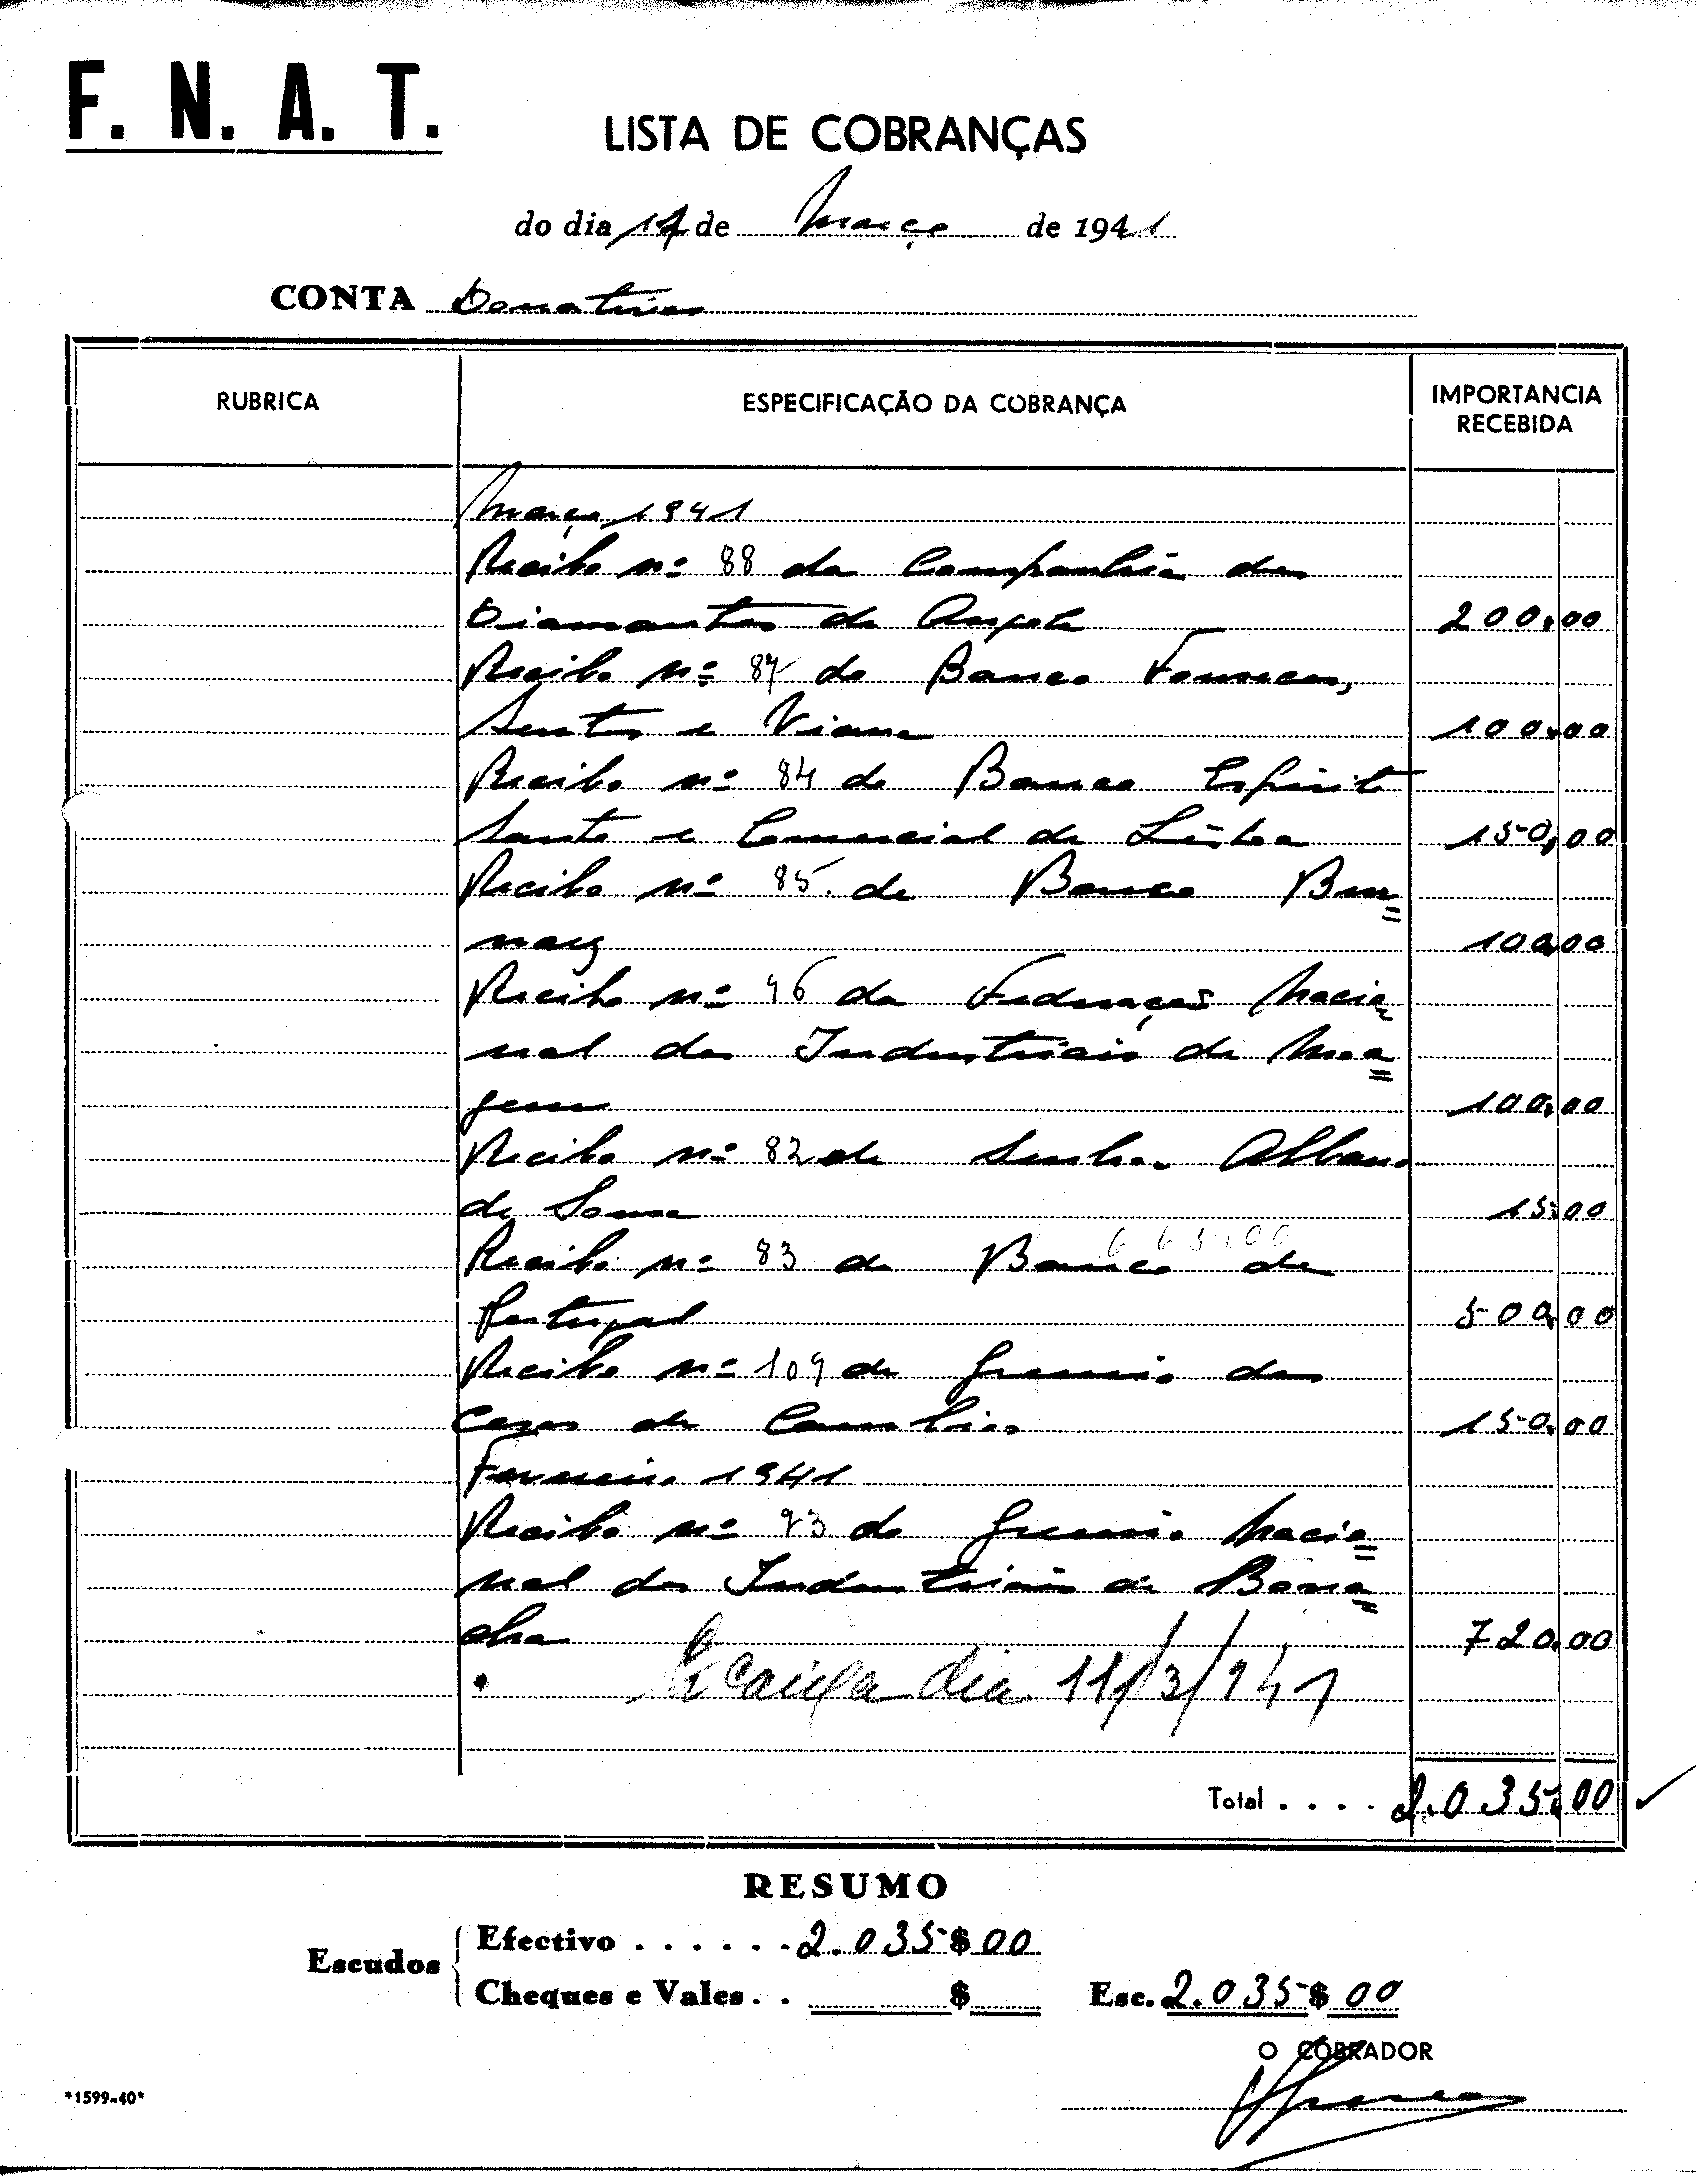 F. N. A. T.
LISTA DE COBRANÇAS
do dia de Março de 1941
CONTA Donativos
RUBRICA
ESPECIFICAÇÃO DA COBRANÇA
IMPORTANCIA
RECEBIDA
Março 1941
Recibo nº 88 da Companhia dos
Diamantes de Angola 200.00
Recibo nº 87 do Banco Fonsecas,
Santos e Viana 100.00
Recibo nº 84 do Banco Espirito
Santo e Comercial de Lisboa 150.00
Recibo nº 85. do Banco Bur=
nay 100.00
Recibo nº 96 da Federação Nacio=
nal dos Industriais de Moa=
gem 100.00
Recibo nº 82 do Senhor Albano
de Sousa 15.00
665.00
Recibo nº 83 do Banco de
Portugal 500.00
Recibo nº 109 do Gremio das
Casas de Cambio 150.00
Fevereiro 1941
Recibo nº 93 do Gremio Nacio=
nal dos Industriais de Borra=
cha 720.00
dia 11/3/941
Total . . . . 2.035.00
RESUMO
Escudos
Efectivo . . . . . . 2.035$00
Cheques e Vales . . $
Esc. 2.035$00
O COBRADOR
*1599-40*